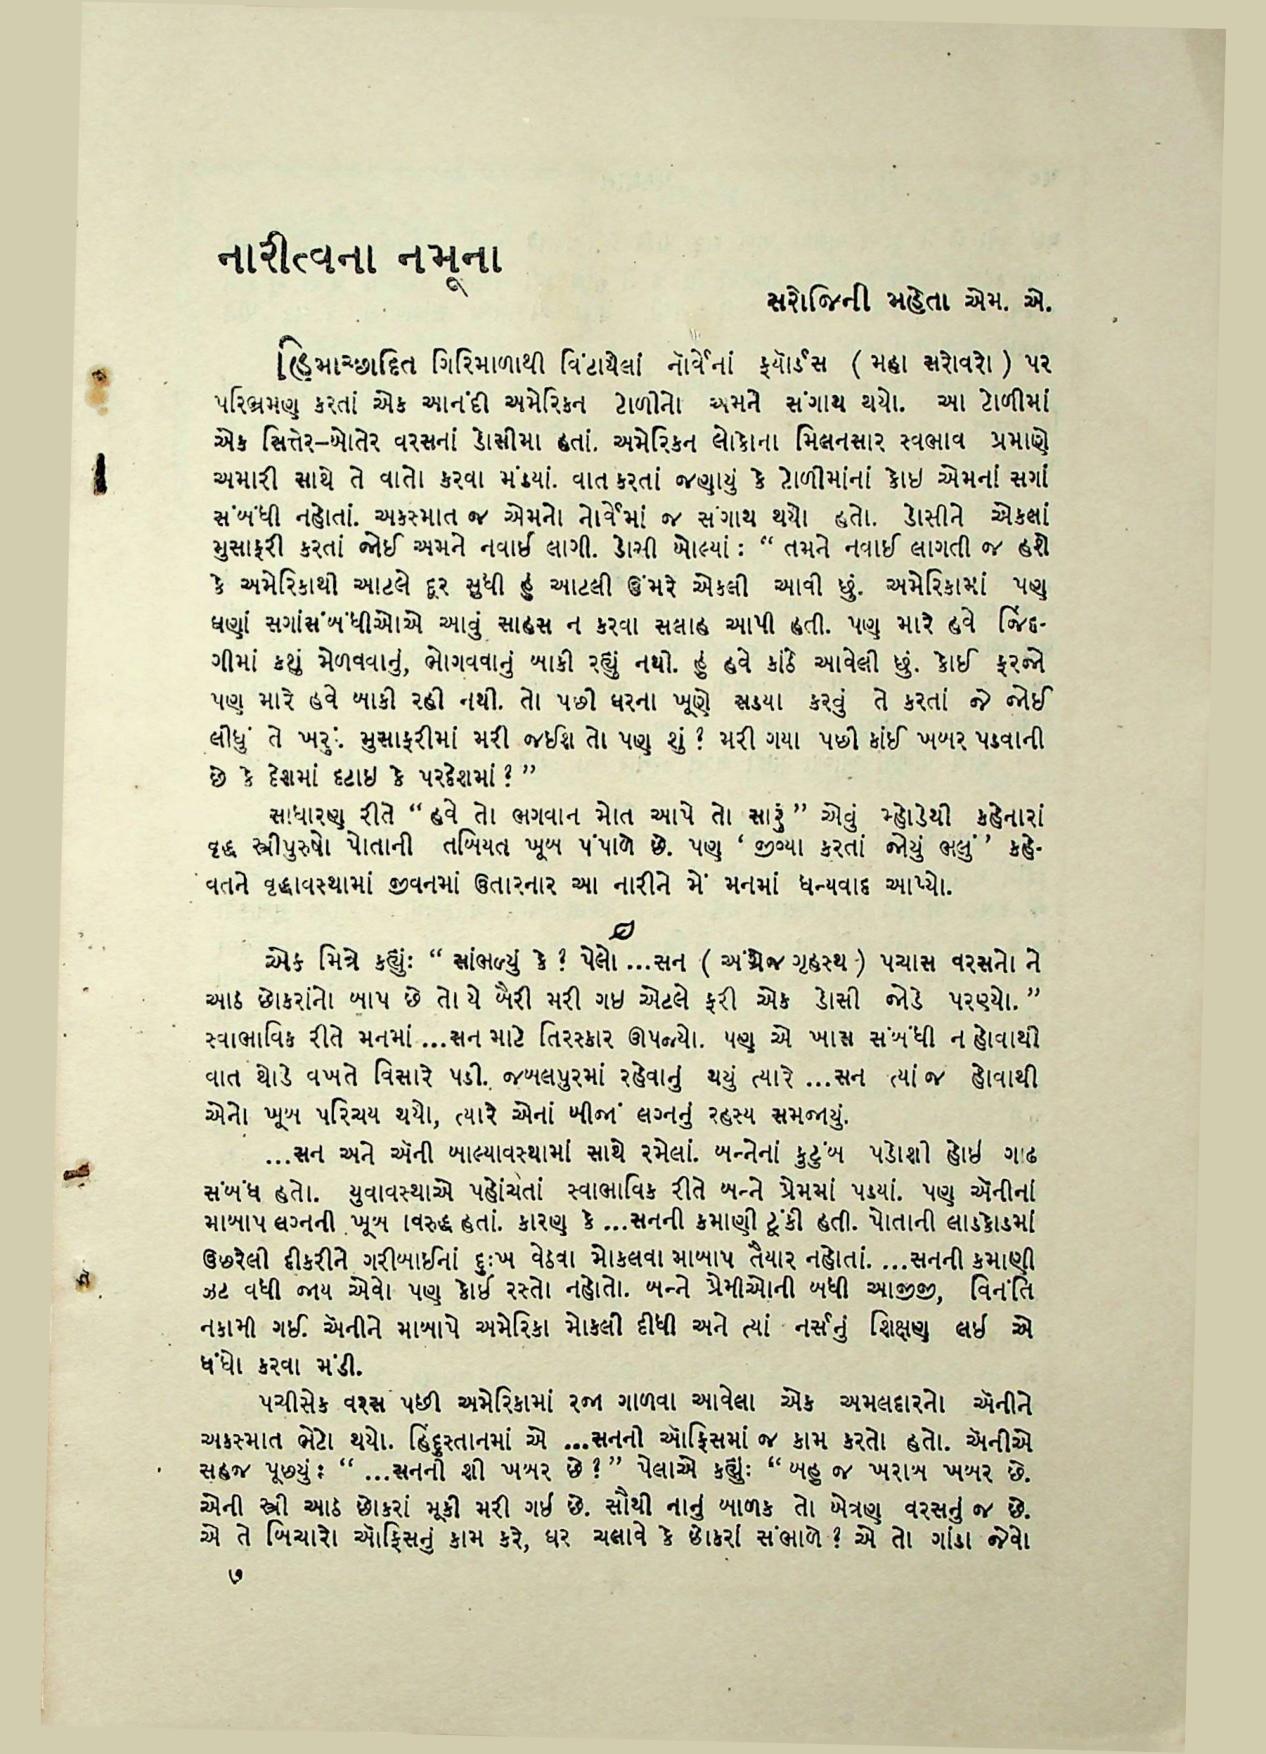 નારીત્વના નમૂના
સરોજિની મહેતા એમ. એ.
હિમાચ્છાદિત ગિરિમાળાથી વિંટાયેલાં નૉર્વેનાં ફયૉર્ડસ ( મહા સરોવરો ) પર
પરિભ્રમણ કરતાં એક આનંદી અમેરિકન ટોળીનો અમને સંગાથ થયો. આ ટોળીમાં
એક સિત્તેર-બોતેર વરસનાં ડોસીમા હતાં. અમેરિકન લોકોના મિલનસાર સ્વભાવ પ્રમાણે
અમારી સાથે તે વાતો કરવા મંડયાં. વાત કરતાં જણાયું કે ટોળીમાંનાં કોઇ એમનાં સગાં
સંબંધી નહોતાં. અકસ્માત જ એમનો નોર્વેમાં જ સંગાથ થયો હતો. ડોસીને એકલાં
મુસાફરી કરતાં જોઈ અમને નવાઈ લાગી. ડોસી બોલ્યાં : “ તમને નવાઈ લાગતી જ હશે
કે અમેરિકાથી આટલે દૂર સુધી હું આટલી ઉંમરે એકલી આવી છું. અમેરિકામાં પણ
ઘણાં સગાંસંબંધીઓએ આવું સાહસ ન કરવા સલાહ આપી હતી. પણ મારે હવે જિંદ-
ગીમાં કશું મેળવવાનું, ભોગવવાનું બાકી રહ્યું નથી. હું હવે કાંઠે આવેલી છું. કોઈ ફરજો
પણ મારે હવે બાકી રહી નથી. તો પછી ઘરના ખૂણે સડયા કરવું તે કરતાં જે જોઈ
લીધું તે ખરું. મુસાફરીમાં મરી જઈશ તો પણ શું ? મરી ગયા પછી કાંઈ ખબર પડવાની
છે કે દેશમાં દટાઇ કે પરદેશમાં ? ”
સાધારણ રીતે “ હવે તો ભગવાન મોત આપે તો સારું ” એવું મ્હોડેથી કહેનારાં
વૃદ્ધ સ્ત્રીપુરુષો પોતાની તબિયત ખૂબ પંપાળે છે. પણ ‘ જીવ્યા કરતાં જોયું ભલું ’ કહે-
વતને વૃદ્ધાવસ્થામાં જીવનમાં ઉતારનાર આ નારીને મેં મનમાં ધન્યવાદ આપ્યો.
એક મિત્રે કહ્યુંઃ “ સાંભળ્યું કે ? પેલો ...સન ( અંગ્રેજ ગૃહસ્થ ) પચાસ વરસનો ને
આઠ છોકરાંનો બાપ છે તો યે બૈરી મરી ગઇ એટલે ફરી એક ડોસી જોડે પરણ્યો. ”
સ્વાભાવિક રીતે મનમાં ...સન માટે તિરસ્કાર ઊપજ્યો. પણ એ ખાસ સંબંધી ન હોવાથી
વાત થોડે વખતે વિસારે પડી. જબલપુરમાં રહેવાનું થયું ત્યારે ...સન ત્યાં જ હોવાથી
એનો ખૂબ પરિચય થયો, ત્યારે એનાં બીજાં લગ્નનું રહસ્ય સમજાયું.
...સન અને ઍની બાલ્યાવસ્થામાં સાથે રમેલાં. બન્નેનાં કુટુંબ પડોશી હોઇ ગાઢ
સંબંધ હતો. યુવાવસ્થાએ પહોંચતાં સ્વાભાવિક રીતે બન્ને પ્રેમમાં પડયાં. પણ ઍનીનાં
માબાપ લગ્નની ખૂબ વિરુદ્ધ હતાં. કારણ કે ...સનની કમાણી ટૂંકી હતી. પોતાની લાડકોડમાં
ઉછરેલી દીકરીને ગરીબાઈનાં દુઃખ વેઠવા મોકલવા માબાપ તૈયાર નહોતાં. ...સનની કમાણી
ઝટ વધી જાય એવો પણ કોઈ રસ્તો નહોતો. બન્ને પ્રેમીઓની બધી આજીજી, વિનંતિ
નકામી ગઈ. ઍનીને માબાપે અમેરિકા મોકલી દીધી અને ત્યાં નર્સનું શિક્ષણ લઇ એ
ધંધો કરવા મંડી.
પચીસેક વરસ પછી અમેરિકામાં રજા ગાળવા આવેલા એક અમલદારનો ઍનીને
અકસ્માત ભેટો થયો. હિંદુસ્તાનમાં એ ...સનની ઑફિસમાં જ કામ કરતો હતો. ઍનીએ
સહજ પૂછયું : “ ...સનની શી ખબર છે ? ” પેલાએ કહ્યુંઃ “ બહુ જ ખરાબ ખબર છે.
એની સ્ત્રી આઠ છોકરાં મૂકી મરી ગઈ છે. સૌથી નાનું બાળક તો બેત્રણ વરસનું જ છે.
એ તે બિચારો ઑફિસનું કામ કરે, ઘર ચલાવે કે છોકરાં સંભાળે ? એ તો ગાંડા જેવો
૭